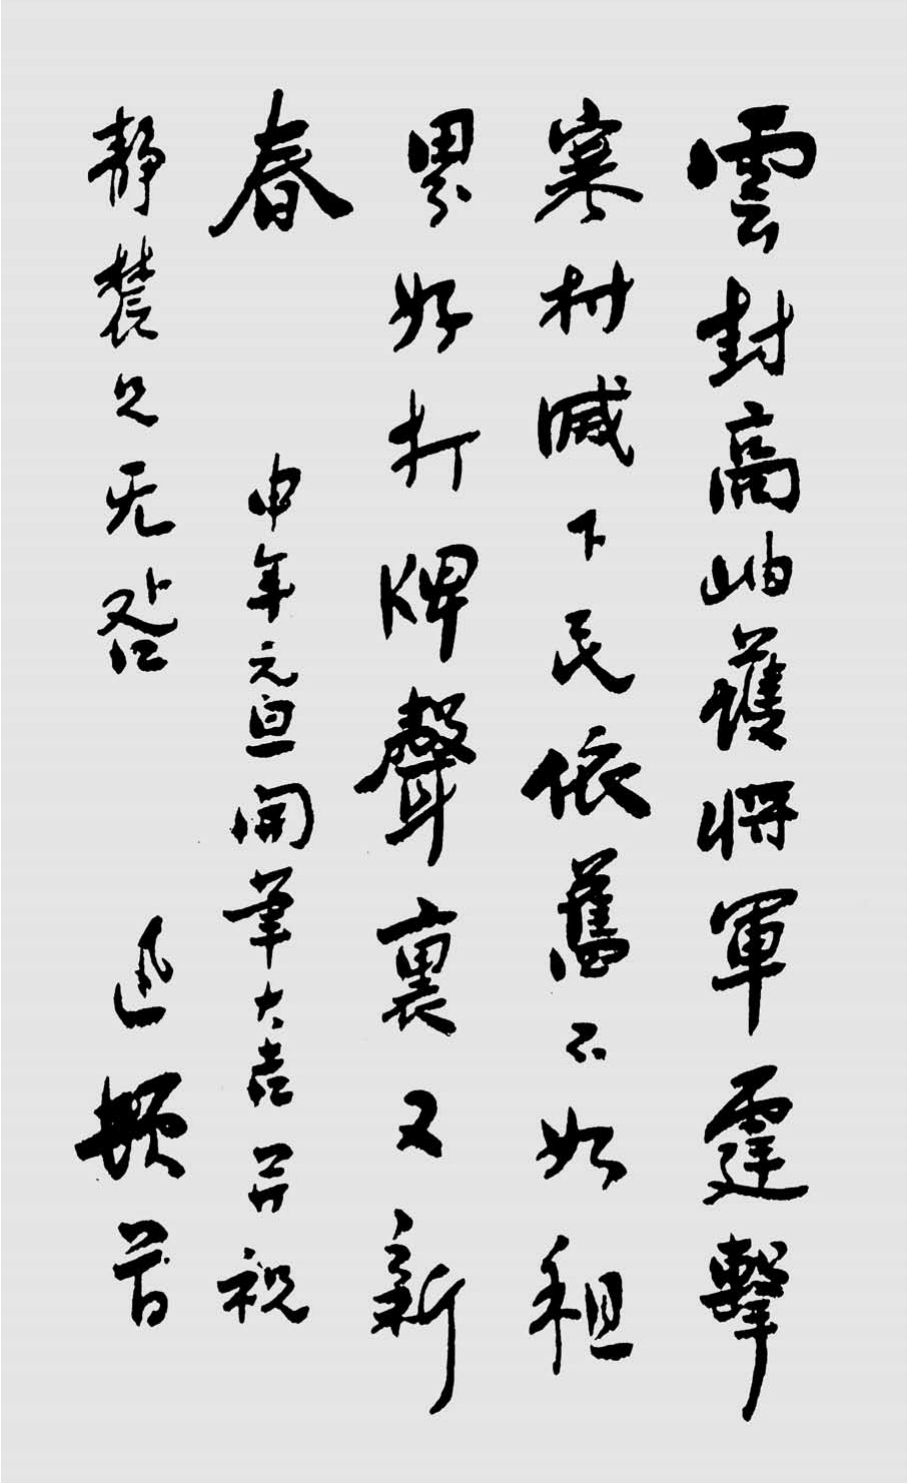 雲封高岫護將軍霆擊
寒村滅下民依舊不如租
界好打牌聲裏又新
春
申年元旦開筆大吉并祝
靜農兄无咎
迅頓首